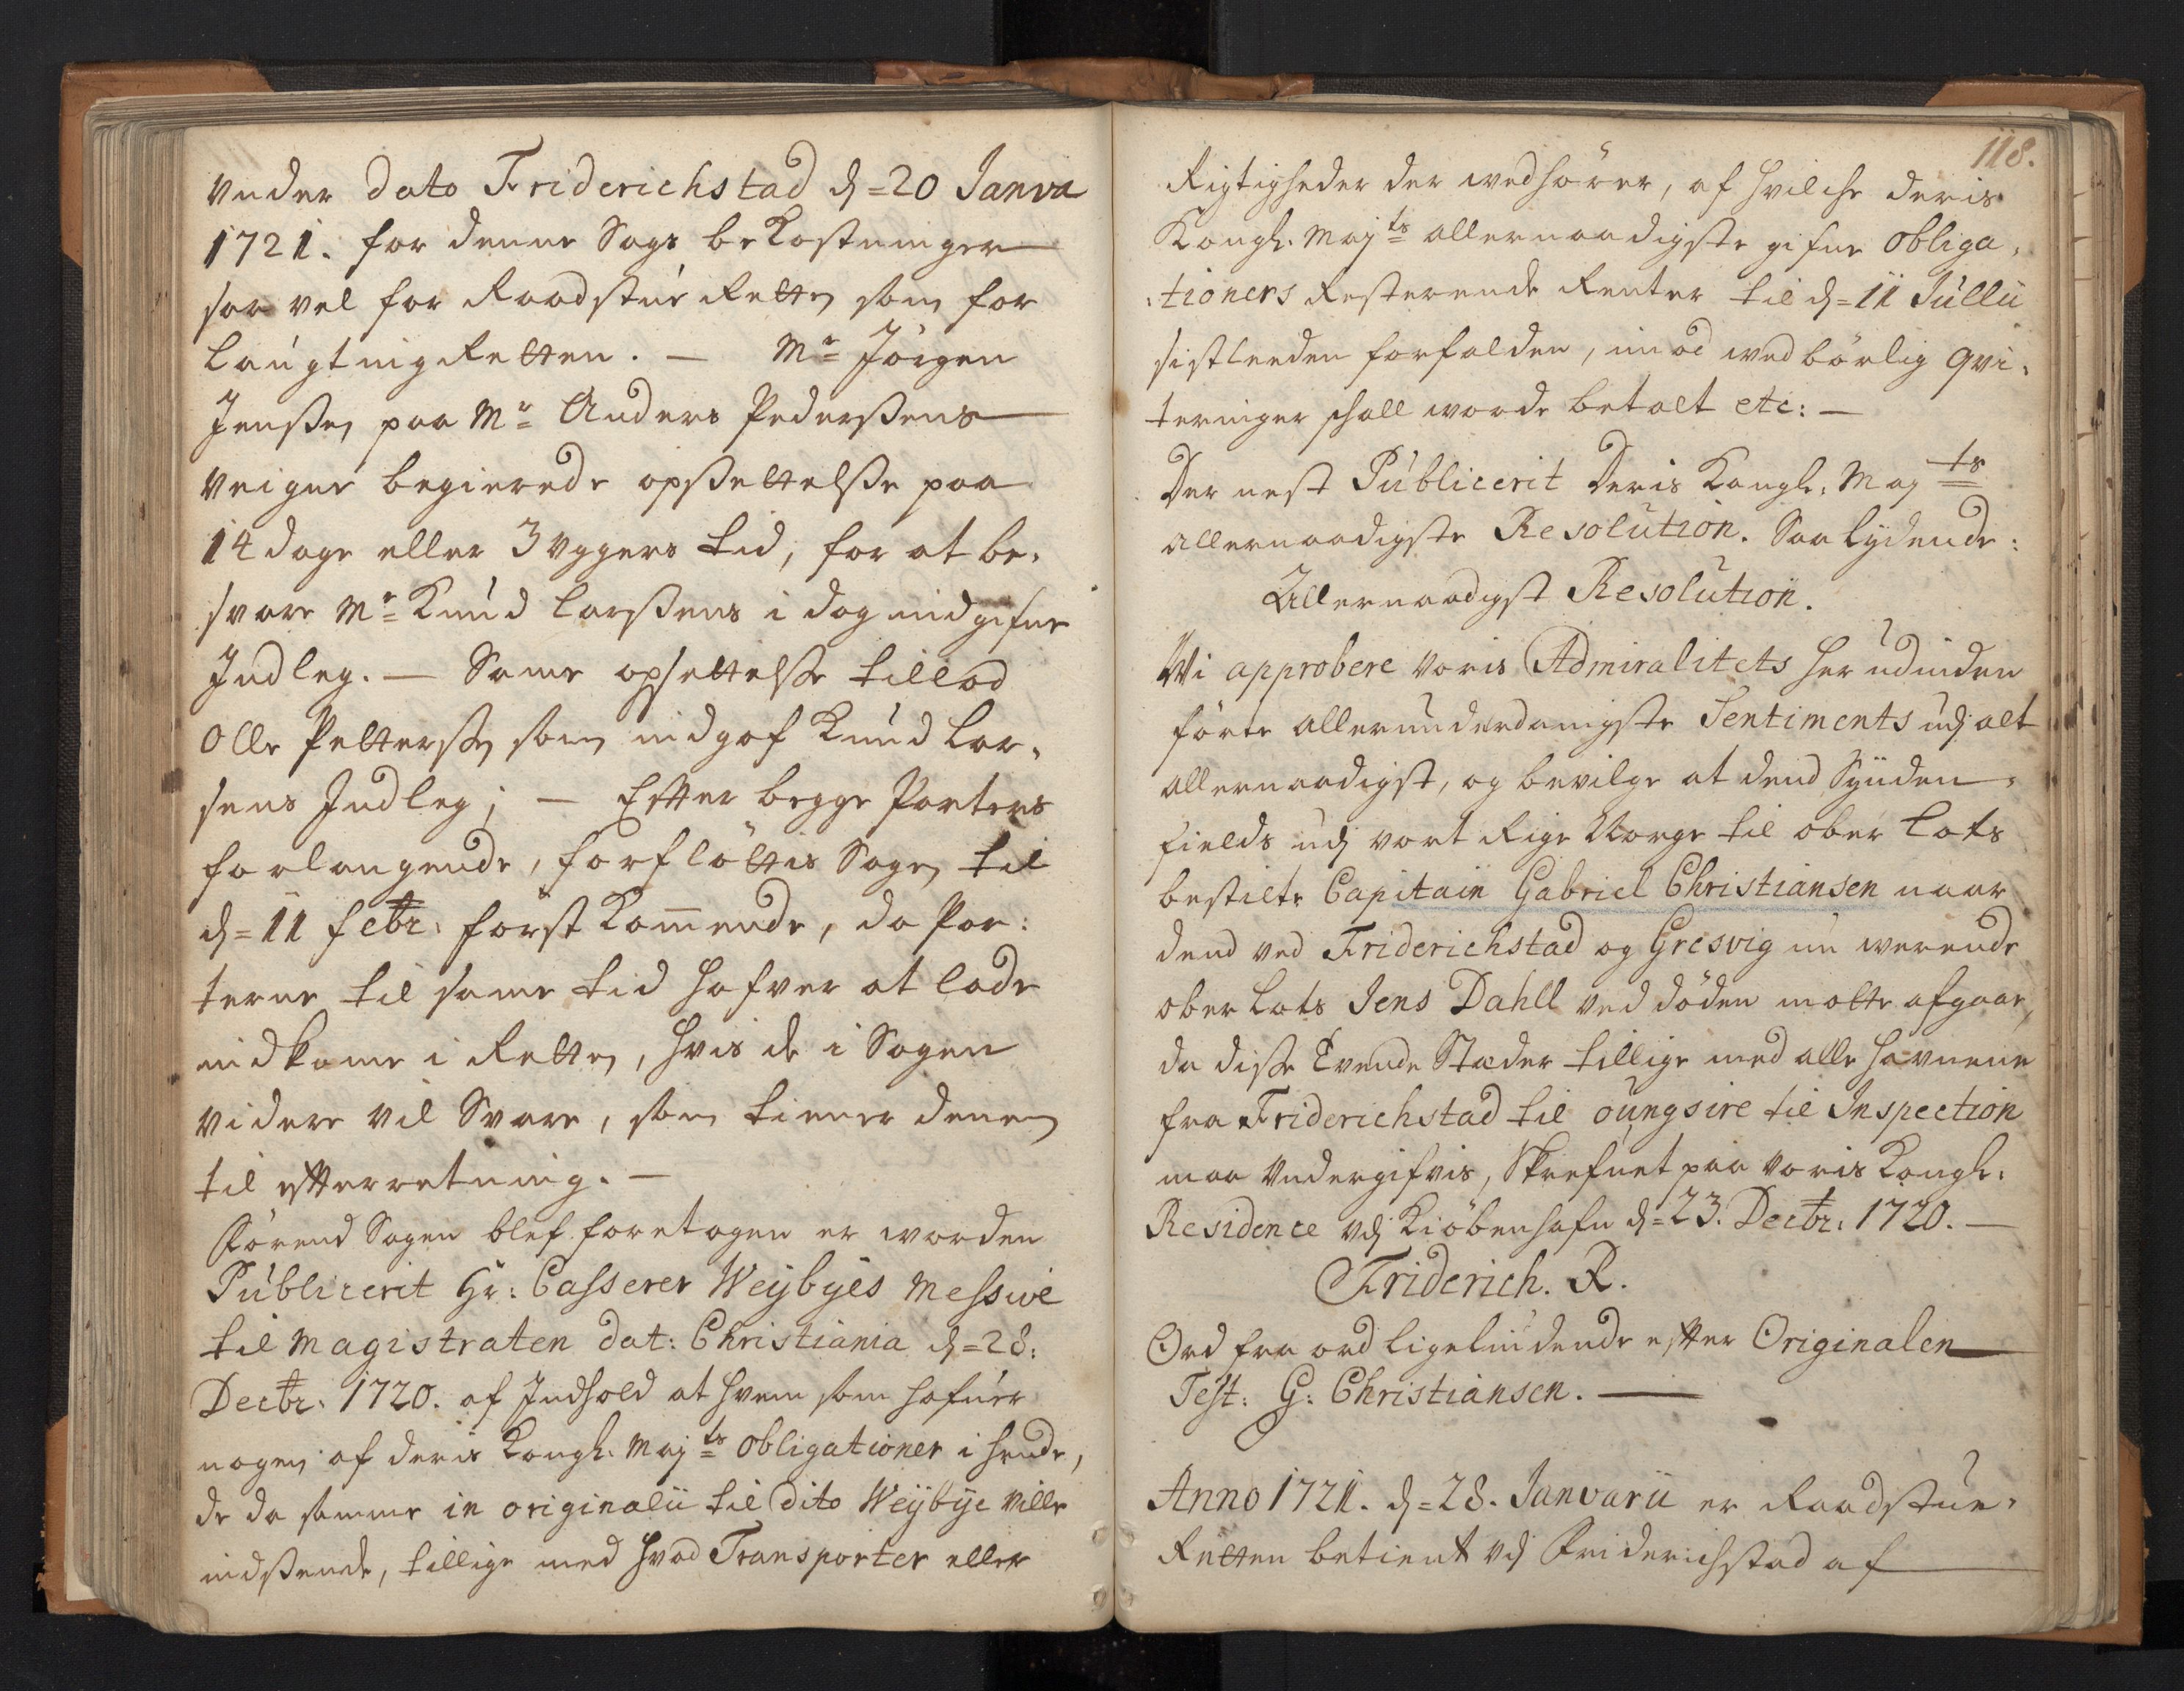 under dato Friderichstad d=20 Janva
1721. for denne Sags bekostninger
saa vel for Raadstue Retten som for
Laugting Retten. — Mr Jörgen
Jenßen paa Mr Anders Pederßens
veigne begierede opßettelße paa
14 dage eller 3 Uggers tid, for at be,
svare Mr Knud Larßens i dag indgifne
Indleg. — Same opsettelße tillod
Olle Petterßen som indgaf Knud Lar,
sens Indleg; — Efter begge Parters
forlangende, forfløttis Sagen til
d=11 febr: först kommende, da Par:
terne til same tid hafver at lade
indkome i Retten, hvis de i Sagen
videre vil Svare, som tiener denem
til efterretning. —
Förend Sagen blef foretagen er worden
Publicerit Hr: Casserer Weybyes Messive
til Magistraten dat: Christiania d=28:
Decbr: 1720. af Indhold at hvem som hafuer
nogen af deris Kongl: Majts obligationer i hende,
de da samme in originalii til dito Weybye ville
indßende, tillige med hvad Transporter eller
118.
Rigtigheder der wedhører, af hvilche deris
Kongl: Majts allernaadigste gifne obliga,
,tioners Resterende Renter til d=11 Jullii
sistleeden forfalden, imod wedbörlig qvi,
teringer shall worde betalt etc: —
Der nest Publicerit Deris Kongl: Majts
allernaadigste Resolution. Saa lydende:
Allernaadigst Resolution.
Wi approbere voris Admiralitets her udinden
förte allerunderdanigste Sentiments udj alt
allernaadigst, og bevilge at dend Synden,
fields udj vort Rige Norge til ober Lots
bestilte Capitain Gabriel Christiansen naar
dend ved Friderichstad og Gresvig nu werende
ober Lots Jens Dahll ved döden motte afgaae,
da diße tvende Stæder tillige med alle havnene
fra Friderichstad til oungsire til Inspection
maa undergifvis, Skrefuet paa voris Kongl:
Residence udj Kiöbenhafn d=23. Decbr: 1720. —
Friderich. R.
Ord fra ord ligeliudende efter Originalen
Test: G: Christiansen. —
Anno 1721. d=28. Janvarii er Raadstue,
Retten betient udj Friderichstad af